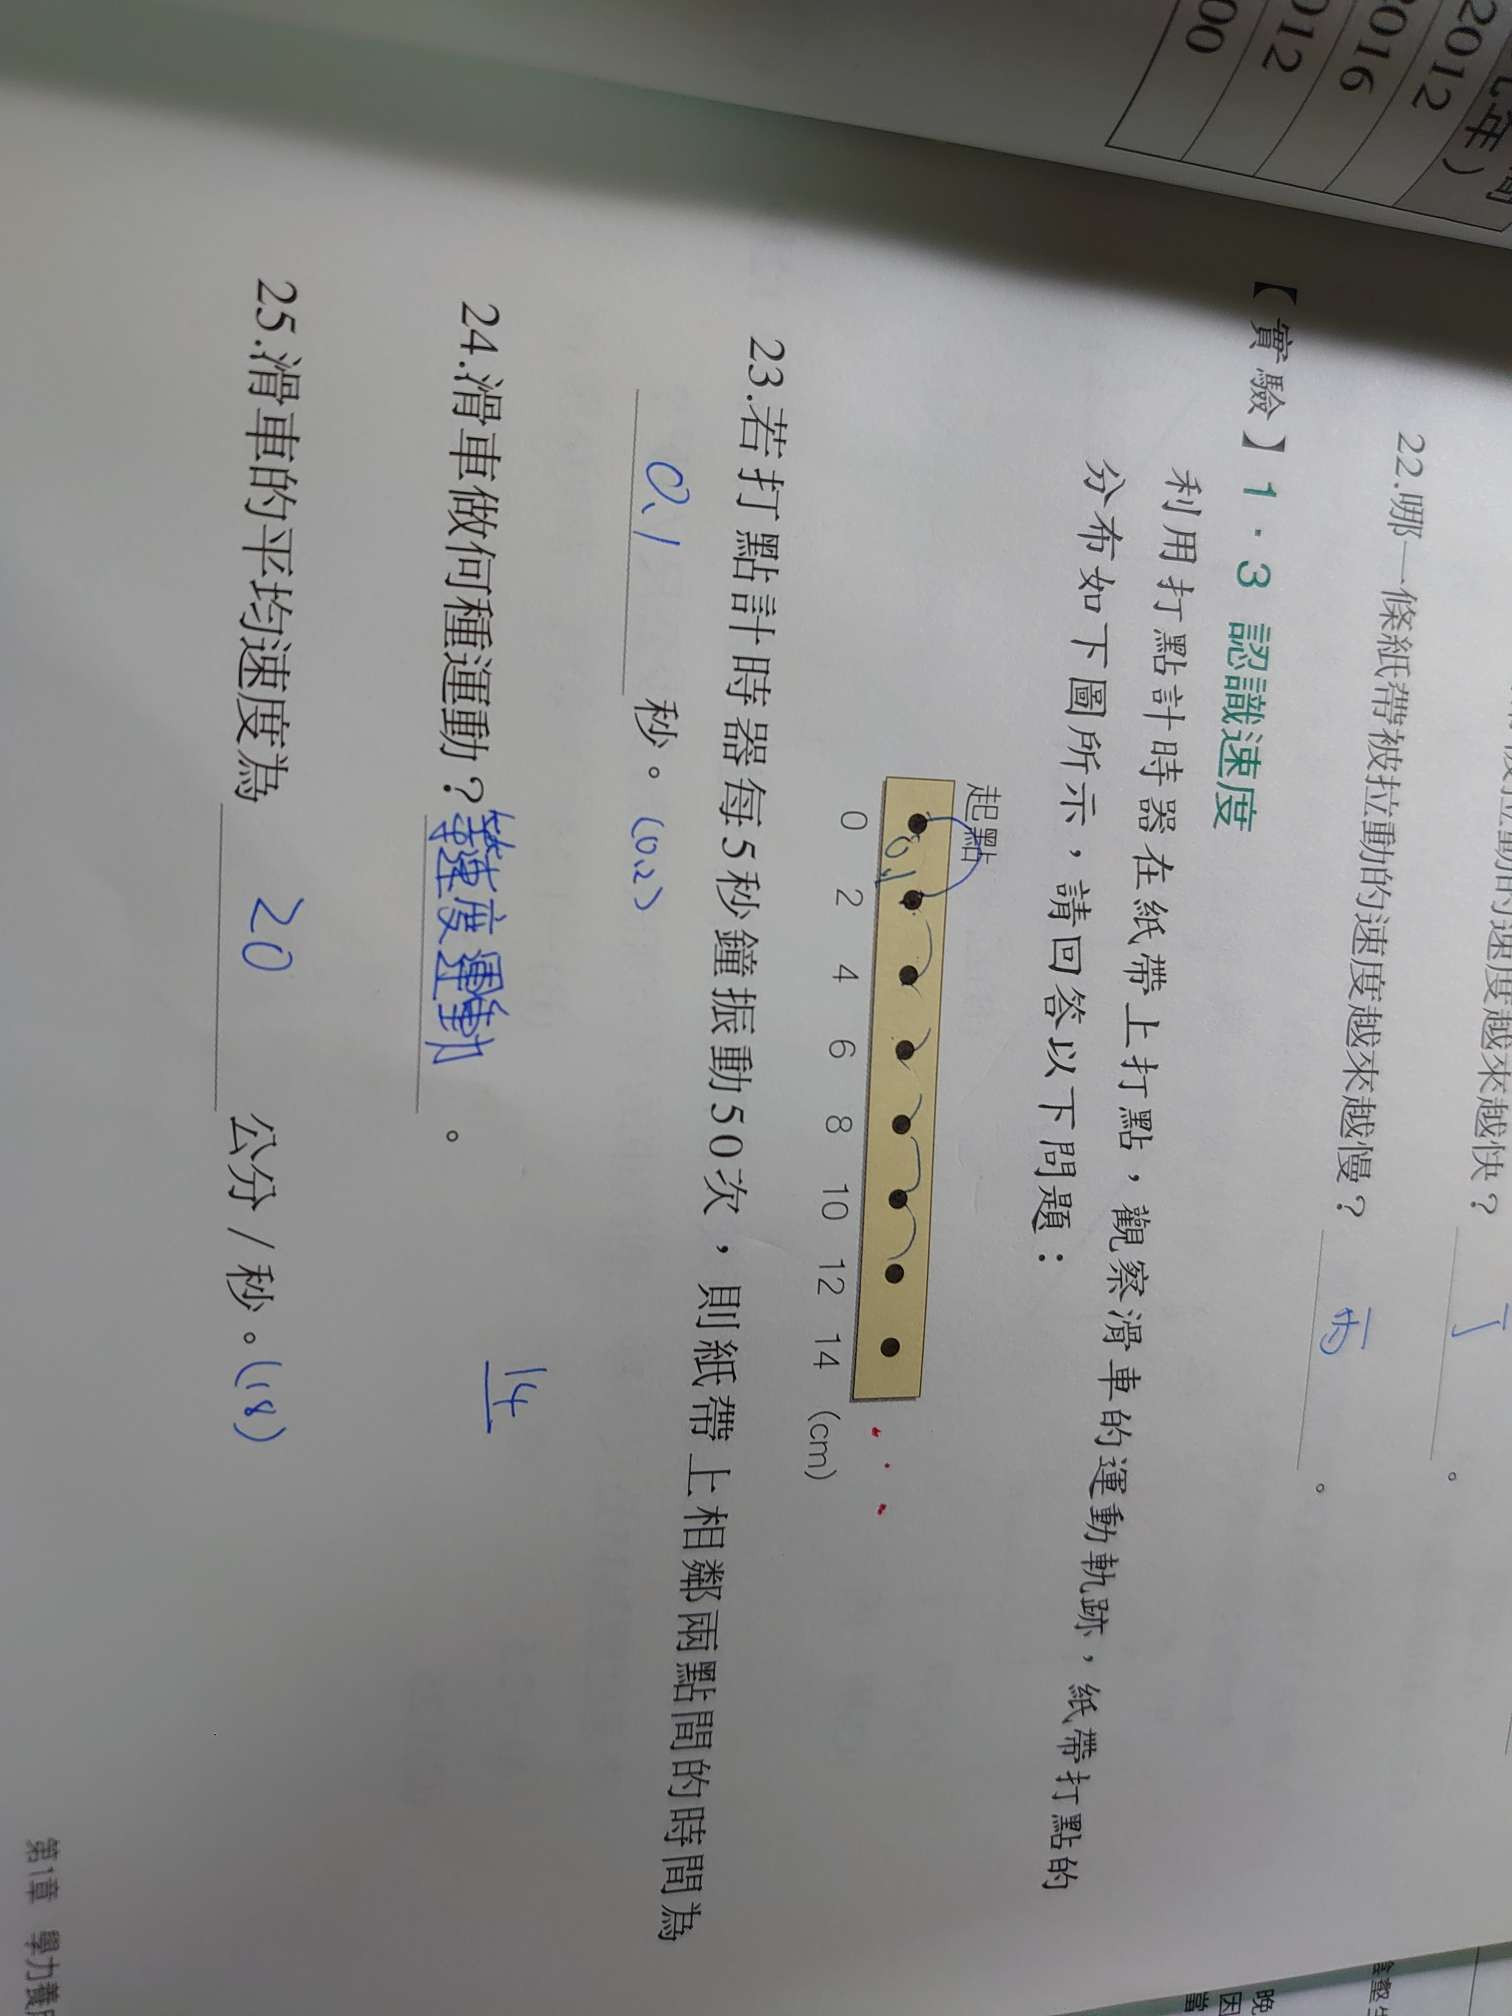 年）
2012
2016
012
00
22.哪一條紙帶被拉動的速度越來越慢？丙。
【實驗】1·3 認識速度
利用打點計時器在紙帶上打點，觀察滑車的運動軌跡，紙帶打點的
分布如下圖所示，請回答以下問題：
起點
0.1
0 2 4 6 8 10 12 14 (cm)
23.若打點計時器每5秒鐘振動50次，則紙帶上相鄰兩點間的時間為
0.1 秒。(0.2)
24.滑車做何種運動？等速度運動。
14
25.滑車的平均速度為 20 公分/秒。(18)
第1章 學力養